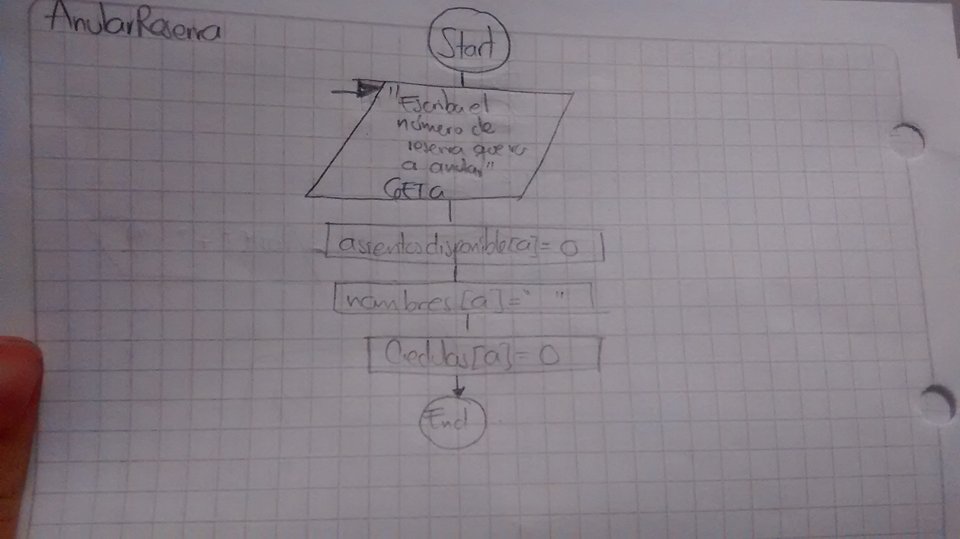 AnularReserva
Start
"Escriba el
número de
reserva que va
a anular"
GET a
asientosdisponible[a]= 0
nombres[a]=" "
Cedulas[a]= 0
End